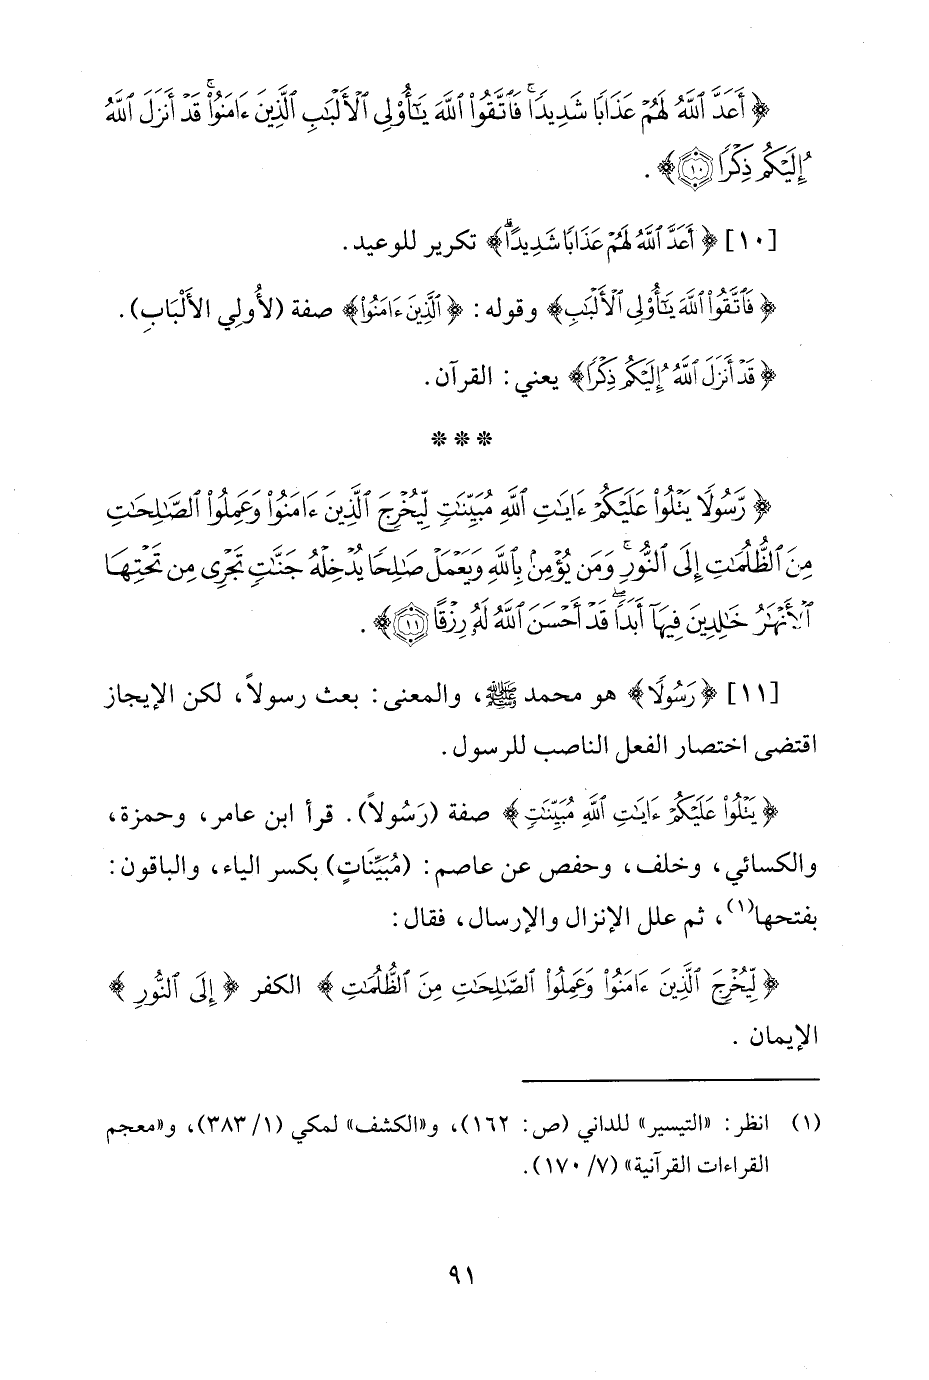 ﴿ أَعَدَّ ٱللَّهُ لَهُمْ عَذَابًا شَدِيدًاۖ فَٱتَّقُوا۟ ٱللَّهَ يَـٰٓأُو۟لِى ٱلْأَلْبَـٰبِ ٱلَّذِينَ ءَامَنُوا۟ۚ قَدْ أَنزَلَ ٱللَّهُ
إِلَيْكُمْ ذِكْرًا ۝١٠﴾ .
[١٠] ﴿ أَعَدَّ ٱللَّهُ لَهُمْ عَذَابًا شَدِيدًاۖ﴾ تكرير للوعيد.
﴿ فَٱتَّقُوا۟ ٱللَّهَ يَـٰٓأُو۟لِى ٱلْأَلْبَـٰبِ﴾ وقوله: ﴿ ٱلَّذِينَ ءَامَنُوا۟﴾ صفة (لأُولِي الأَلْبَابِ).
﴿ قَدْ أَنزَلَ ٱللَّهُ إِلَيْكُمْ ذِكْرًا﴾ يعني: القرآن.
* * *
﴿ رَّسُولًا يَتْلُوا۟ عَلَيْكُمْ ءَايَـٰتِ ٱللَّهِ مُبَيِّنَـٰتٍ لِّيُخْرِجَ ٱلَّذِينَ ءَامَنُوا۟ وَعَمِلُوا۟ ٱلصَّـٰلِحَـٰتِ
مِنَ ٱلظُّلُمَـٰتِ إِلَى ٱلنُّورِۚ وَمَن يُؤْمِنۢ بِٱللَّهِ وَيَعْمَلْ صَـٰلِحًا يُدْخِلْهُ جَنَّـٰتٍ تَجْرِى مِن تَحْتِهَا
ٱلْأَنْهَـٰرُ خَـٰلِدِينَ فِيهَآ أَبَدًاۖ قَدْ أَحْسَنَ ٱللَّهُ لَهُۥ رِزْقًا ۝١١﴾ .
[١١] ﴿رَّسُولًا﴾ هو محمد ﷺ، والمعنى: بعث رسولاً، لكن الإيجاز
اقتضى اختصار الفعل الناصب للرسول.
﴿ يَتْلُوا۟ عَلَيْكُمْ ءَايَـٰتِ ٱللَّهِ مُبَيِّنَـٰتٍ﴾ صفة (رَسُولاً). قرأ ابن عامر، وحمزة،
والكسائي، وخلف، وحفص عن عاصم: (مُبَيِّنَاتٍ) بكسر الياء، والباقون:
بفتحها(١)، ثم علل الإنزال والإرسال، فقال:
﴿ لِّيُخْرِجَ ٱلَّذِينَ ءَامَنُوا۟ وَعَمِلُوا۟ ٱلصَّـٰلِحَـٰتِ مِنَ ٱلظُّلُمَـٰتِ ﴾ الكفر ﴿ إِلَى ٱلنُّورِ ﴾
الإيمان .
(١) انظر: «التيسير» للداني (ص: ١٦٢)، و«الكشف» لمكي (١/ ٣٨٣)، و«معجم
القراءات القرآنية» (٧/ ١٧٠).
٩١